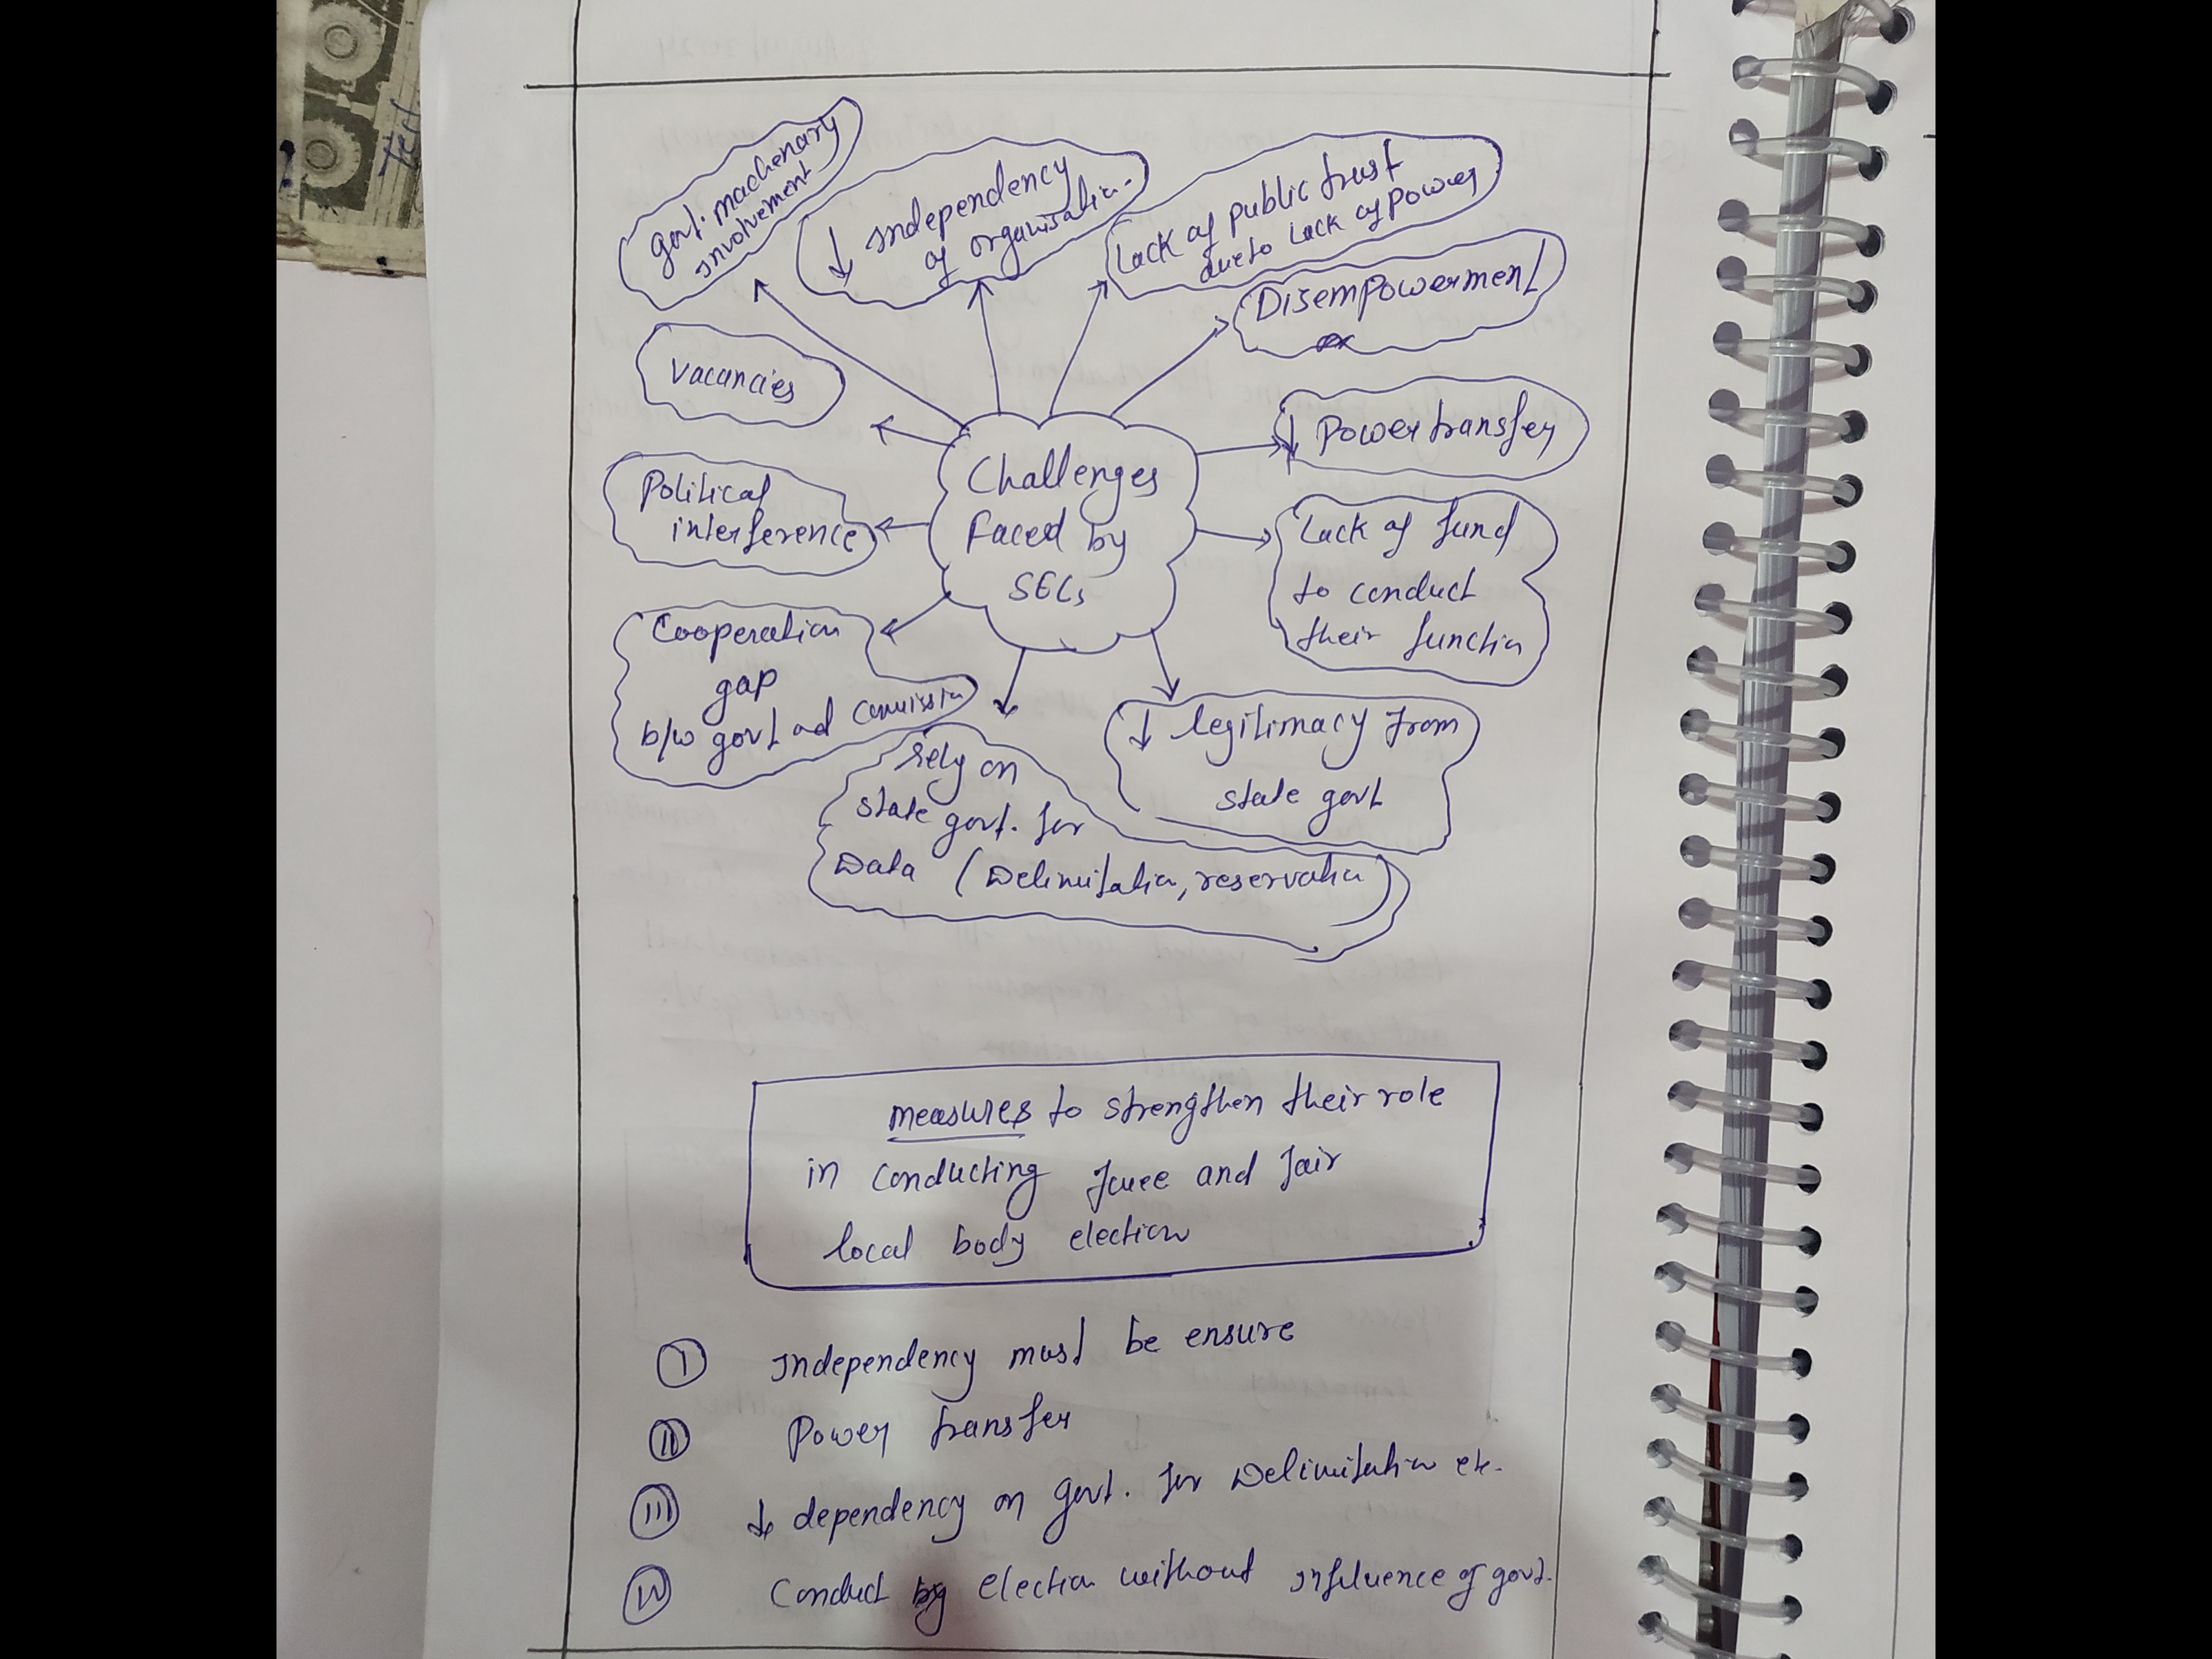 govt. machenary
involvement
↓ independency
of organisation.
Lack of public trust
due to lack of power
Disempowerment
vacancies
↓ Power transfer
Political
interference
Challenges
Faced by
SECs
Lack of fund
to conduct
their function
Cooperation
gap
b/w govt ad commission
↓ legitimacy from
state govt
rely on
state govt. for
Data (Delimitation, reservation)
measures to strengthen their role
in conducting free and fair
local body election
I independency must be ensure
II Power transfer
III ↓ dependency on govt. for Delimitation etc.
IV Conduct election without influence of govt.